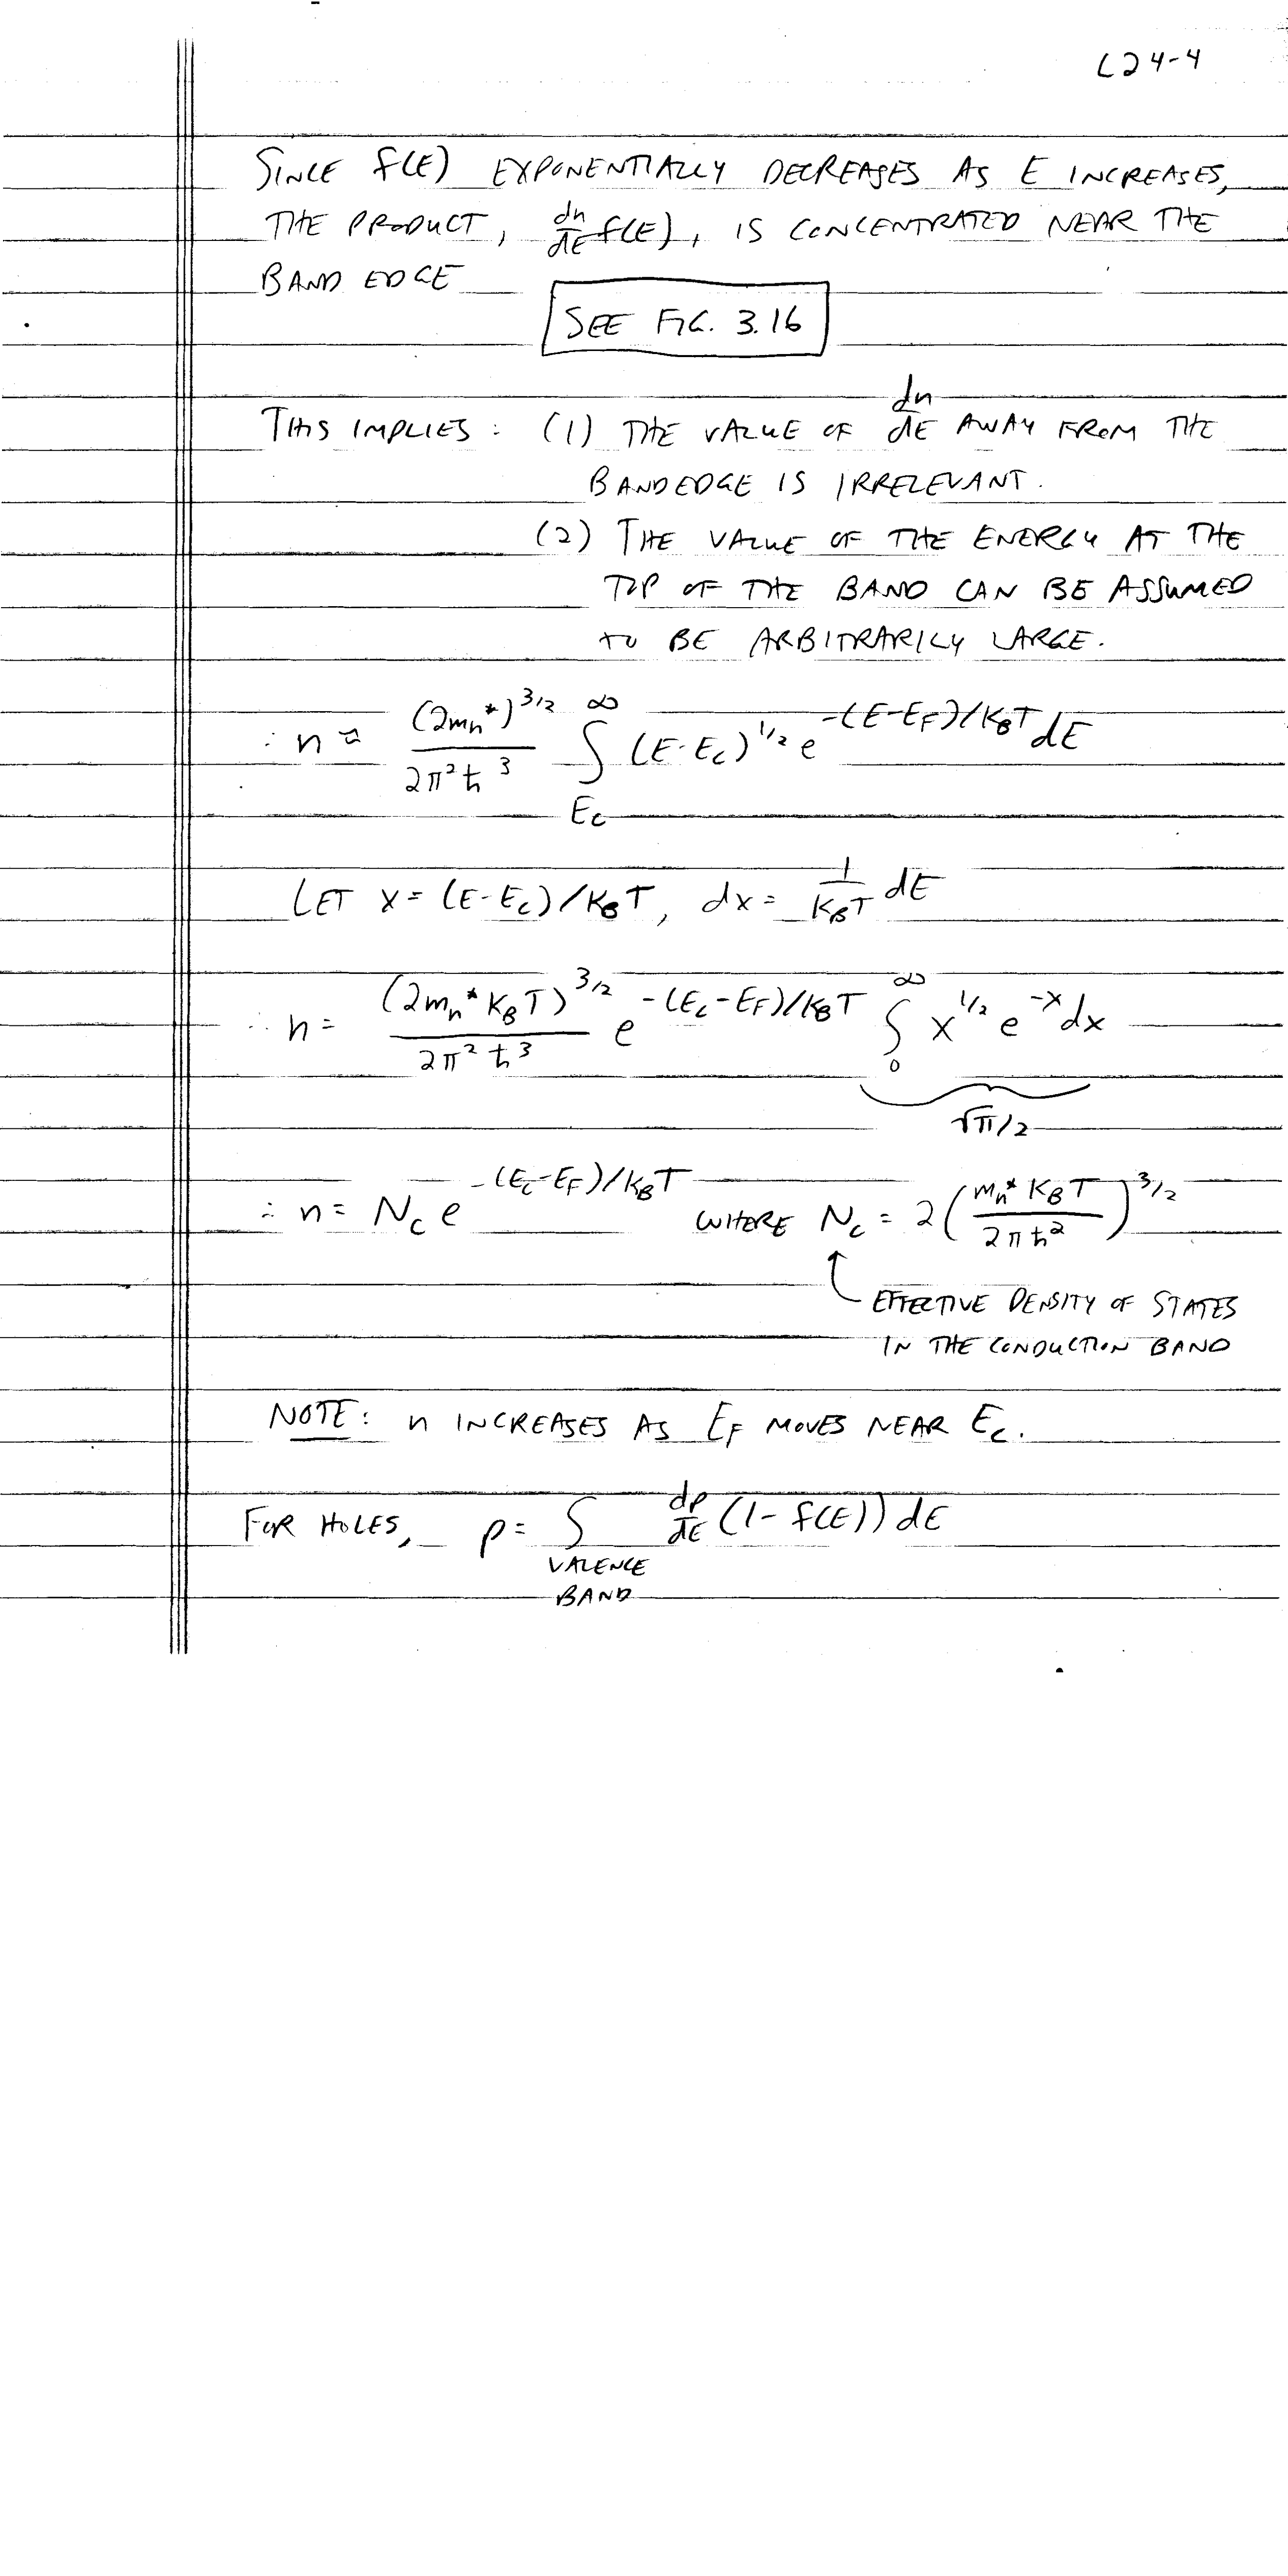 L24-4
SINCE f(E) EXPONENTIALLY DECREASES AS E INCREASES,
THE PRODUCT, dn/dE f(E), IS CONCENTRATED NEAR THE
BAND EDGE
SEE FIG. 3.16
THIS IMPLIES: (1) THE VALUE OF dn/dE AWAY FROM THE
BANDEDGE IS IRRELEVANT.
(2) THE VALUE OF THE ENERGY AT THE
TOP OF THE BAND CAN BE ASSUMED
TO BE ARBITRARILY LARGE.
∴ n ≈ (2mn*)^3/2 / 2π²ħ³ ∫_Ec^∞ (E-Ec)^1/2 e^-(E-EF)/KBT dE
LET x = (E-Ec)/KBT, dx = 1/KBT dE
∴ n = (2mn* KBT)^3/2 / 2π²ħ³ e^-(Ec-EF)/KBT ∫_0^∞ x^1/2 e^-x dx
√π/2
∴ n = Nc e^-(Ec-EF)/KBT WHERE Nc = 2(mn* KBT / 2πħ²)^3/2
EFFECTIVE DENSITY OF STATES
IN THE CONDUCTION BAND
NOTE: n INCREASES AS EF MOVES NEAR Ec.
FOR HOLES, p = ∫ dp/dE (1-f(E)) dE
VALENCE
BAND